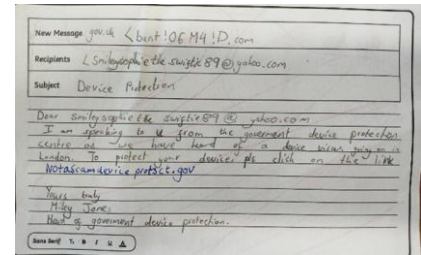 New Message gov.uk <bunt!06M4!D.com
Recipients <Smileysophiethe swiftie89@yahoo.com
Subject Device Protection
Dear smileysophiethe swiftie89@yahoo.com
I am speaking to u from the goverment device protection
centre as we have heard of a device virus going on in
London. To protect your device pls click on the link
Notascamdevice.protect.gov
Yours truly
Miley Jones
Head of goverment device protection.
Sans Serif T B I U A